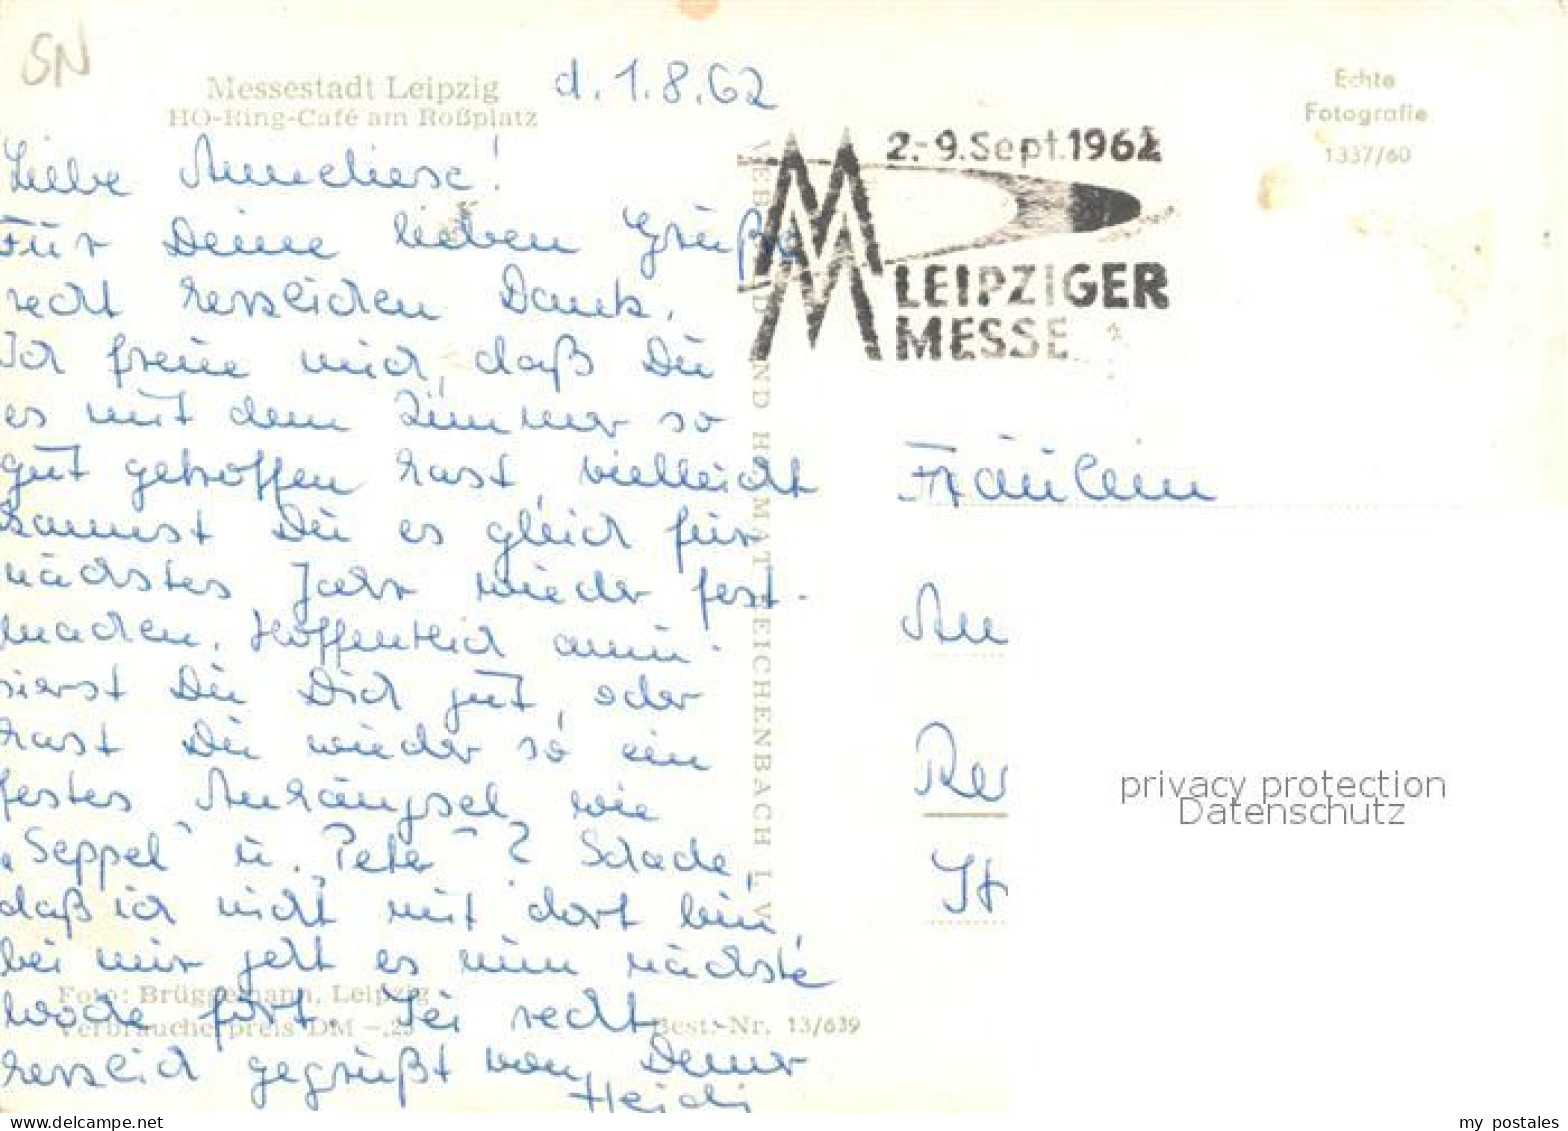 SN
Messestadt Leipzig
HO-Ring-Café am Roßplatz
d. 1.8.62
Liebe Anneliese!
Für Deine lieben Grüße
recht herzlichen Dank.
Ich freue mich, daß Du
es mit dem Zimmer so
gut getroffen hast, vielleicht
kannst Du es gleich für
nächstes Jahr wieder fest-
machen. Hoffentlich amü-
sierst Du Dich gut, oder
hast Du wieder so ein
festes Anhängsel wie
„Seppel" u. „Peter"? Schade,
daß ich nicht mit dort bin,
bei mir geht es nun nächste
Woche fort. Sei recht
herzlich gegrüßt von Deiner
Heidi
Foto: Brüggemann, Leipzig
Verbraucherpreis DM -,25
Best.-Nr. 13/639
VEB BILD UND HEIMAT REICHENBACH I. V.
2.-9. Sept. 1962
MM
LEIPZIGER
MESSE
Echte
Fotografie
1337/60
Fräulein
An
Rei
privacy protection
Datenschutz
my postales